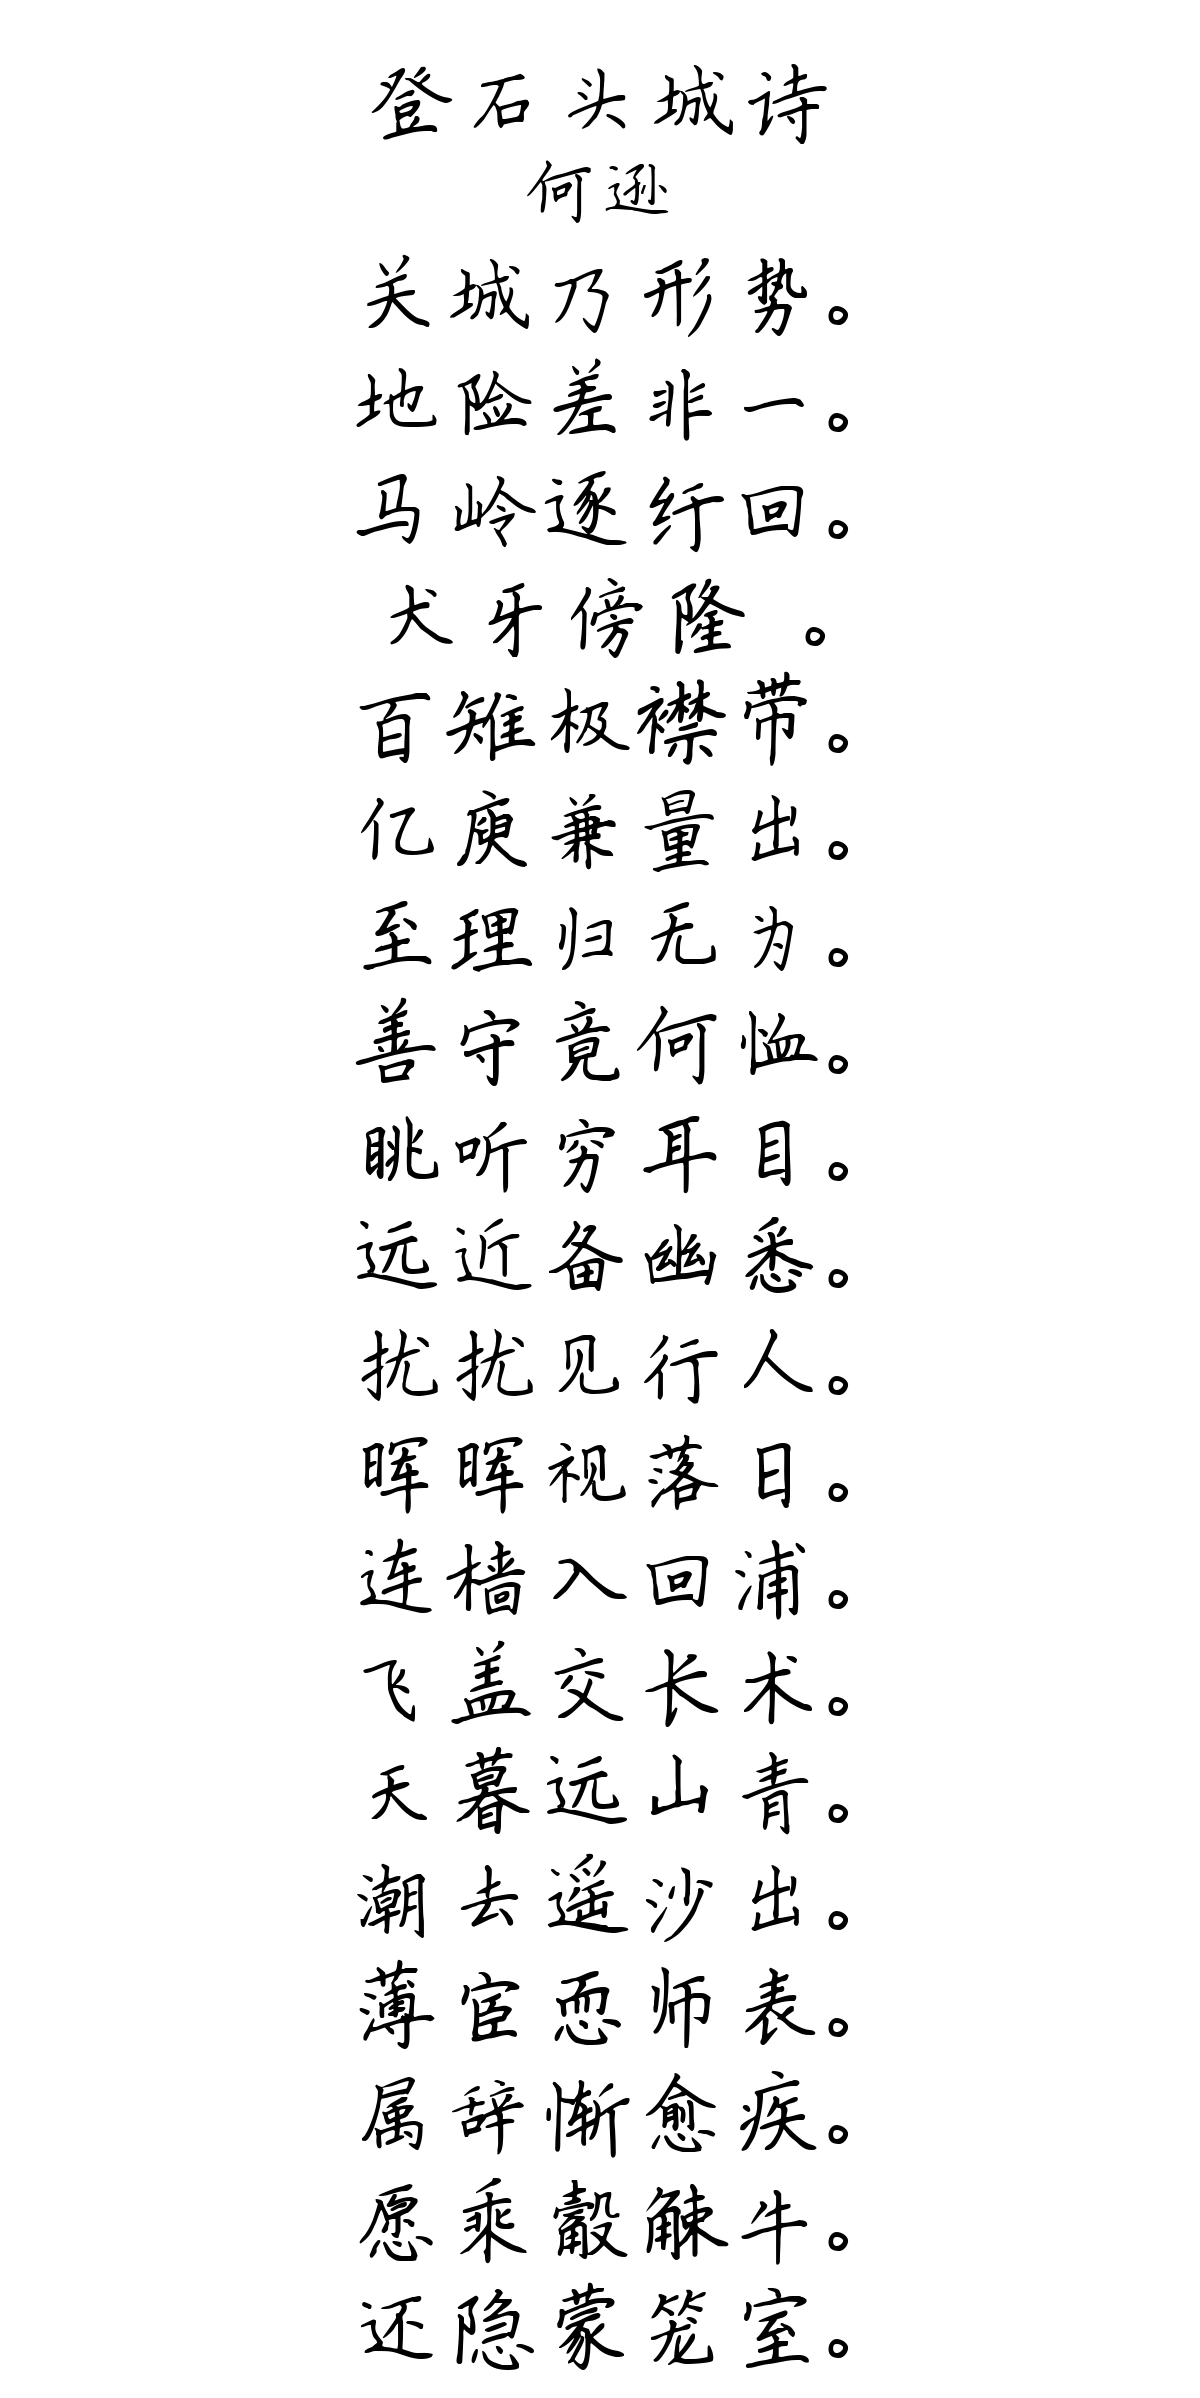 登石头城诗
何逊
关城乃形势。
地险差非一。
马岭逐纡回。
犬牙傍隆 。
百雉极襟带。
亿庾兼量出。
至理归无为。
善守竟何恤。
眺听穷耳目。
远近备幽悉。
扰扰见行人。
晖晖视落日。
连樯入回浦。
飞盖交长术。
天暮远山青。
潮去遥沙出。
薄宦恧师表。
属辞惭愈疾。
愿乘觳觫牛。
还隐蒙笼室。